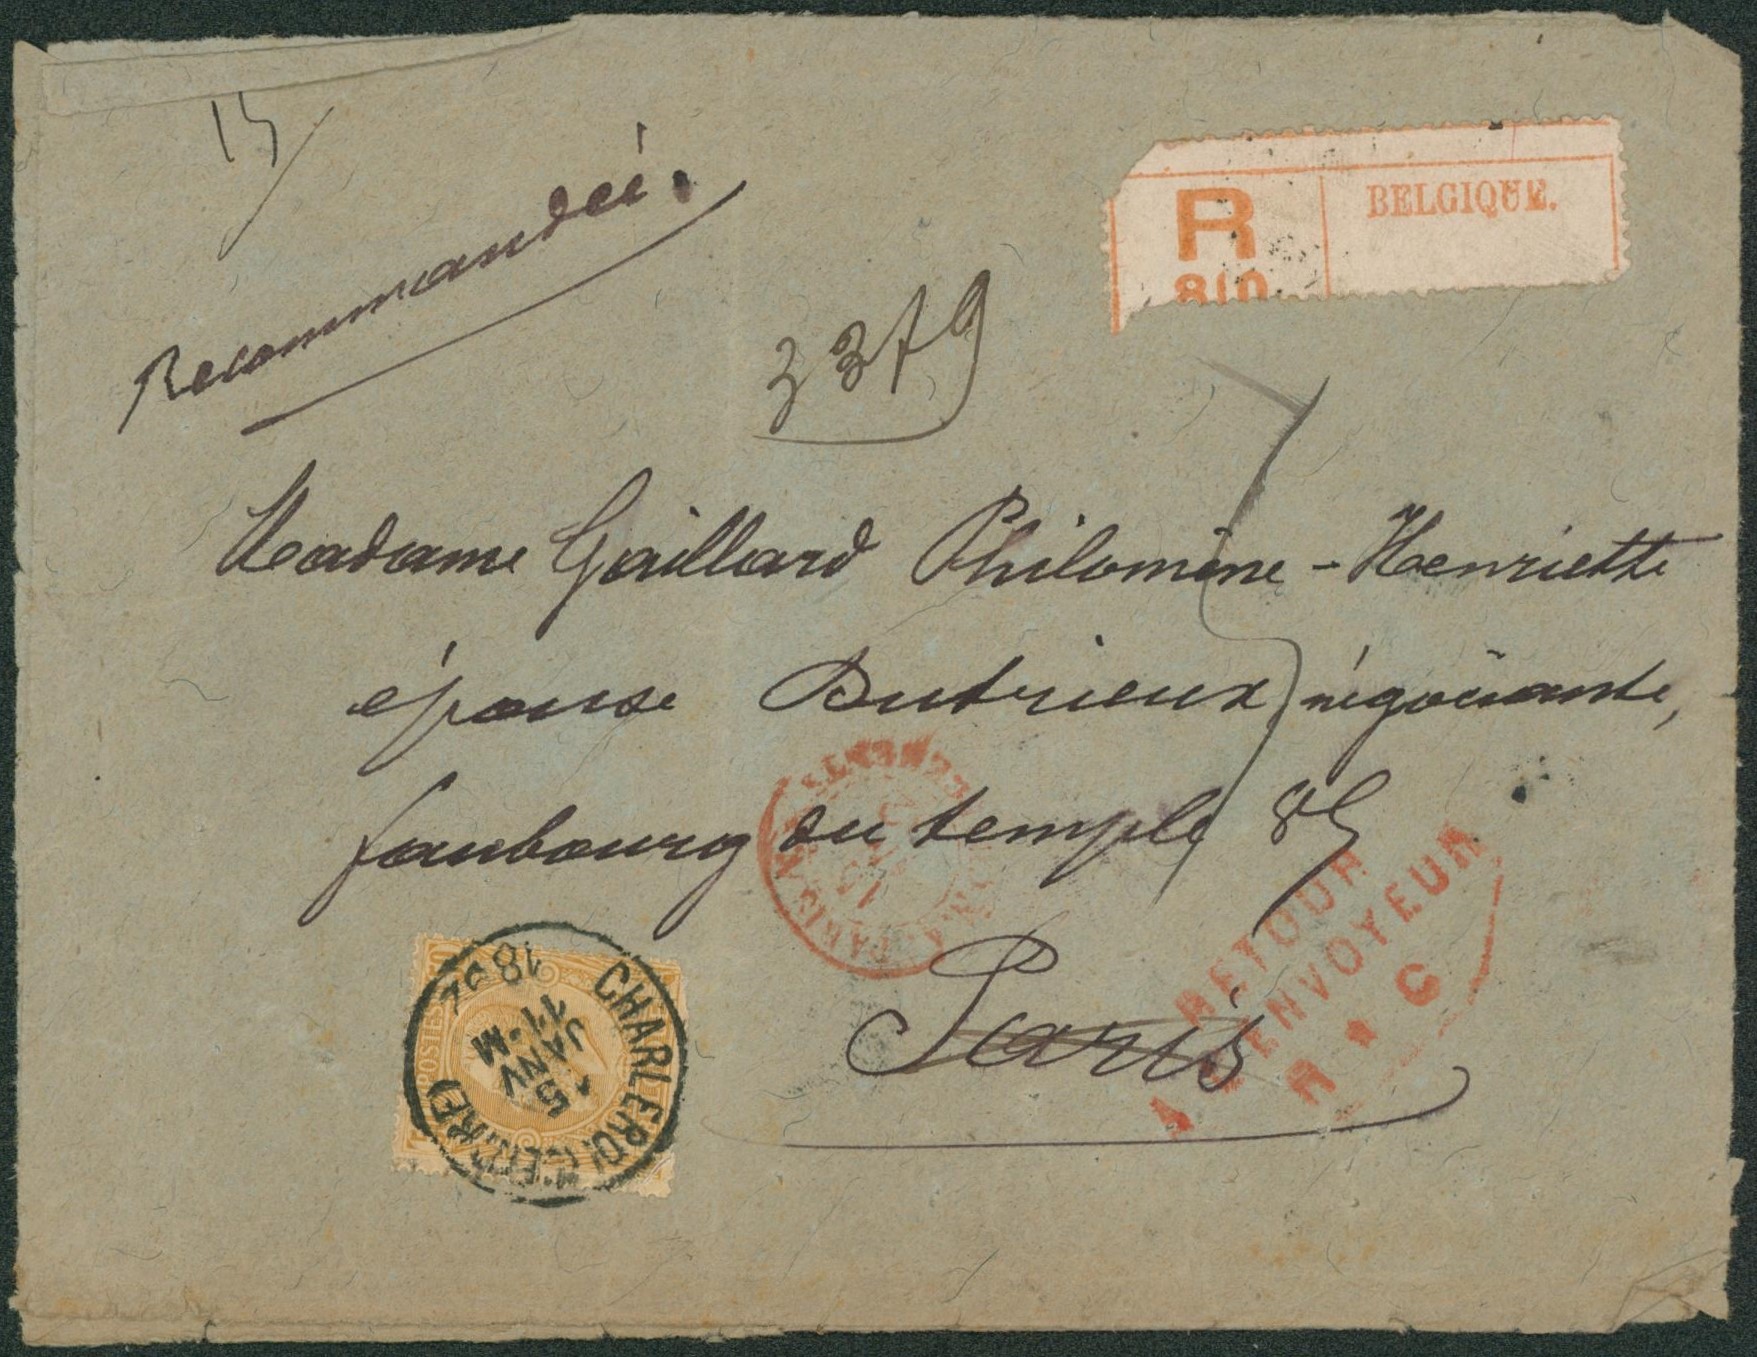 15
Recommandée.
R
BELGIQUE.
810
3379
Madame Gaillard Philomène-Henriette
épouse Dutrieux négociante,
faubourg du temple 85
Paris
PARIS
RETOUR
A L'ENVOYEUR
R * C
CHARLEROI (CENTRE)
15
JANV
11-M
18
POSTES